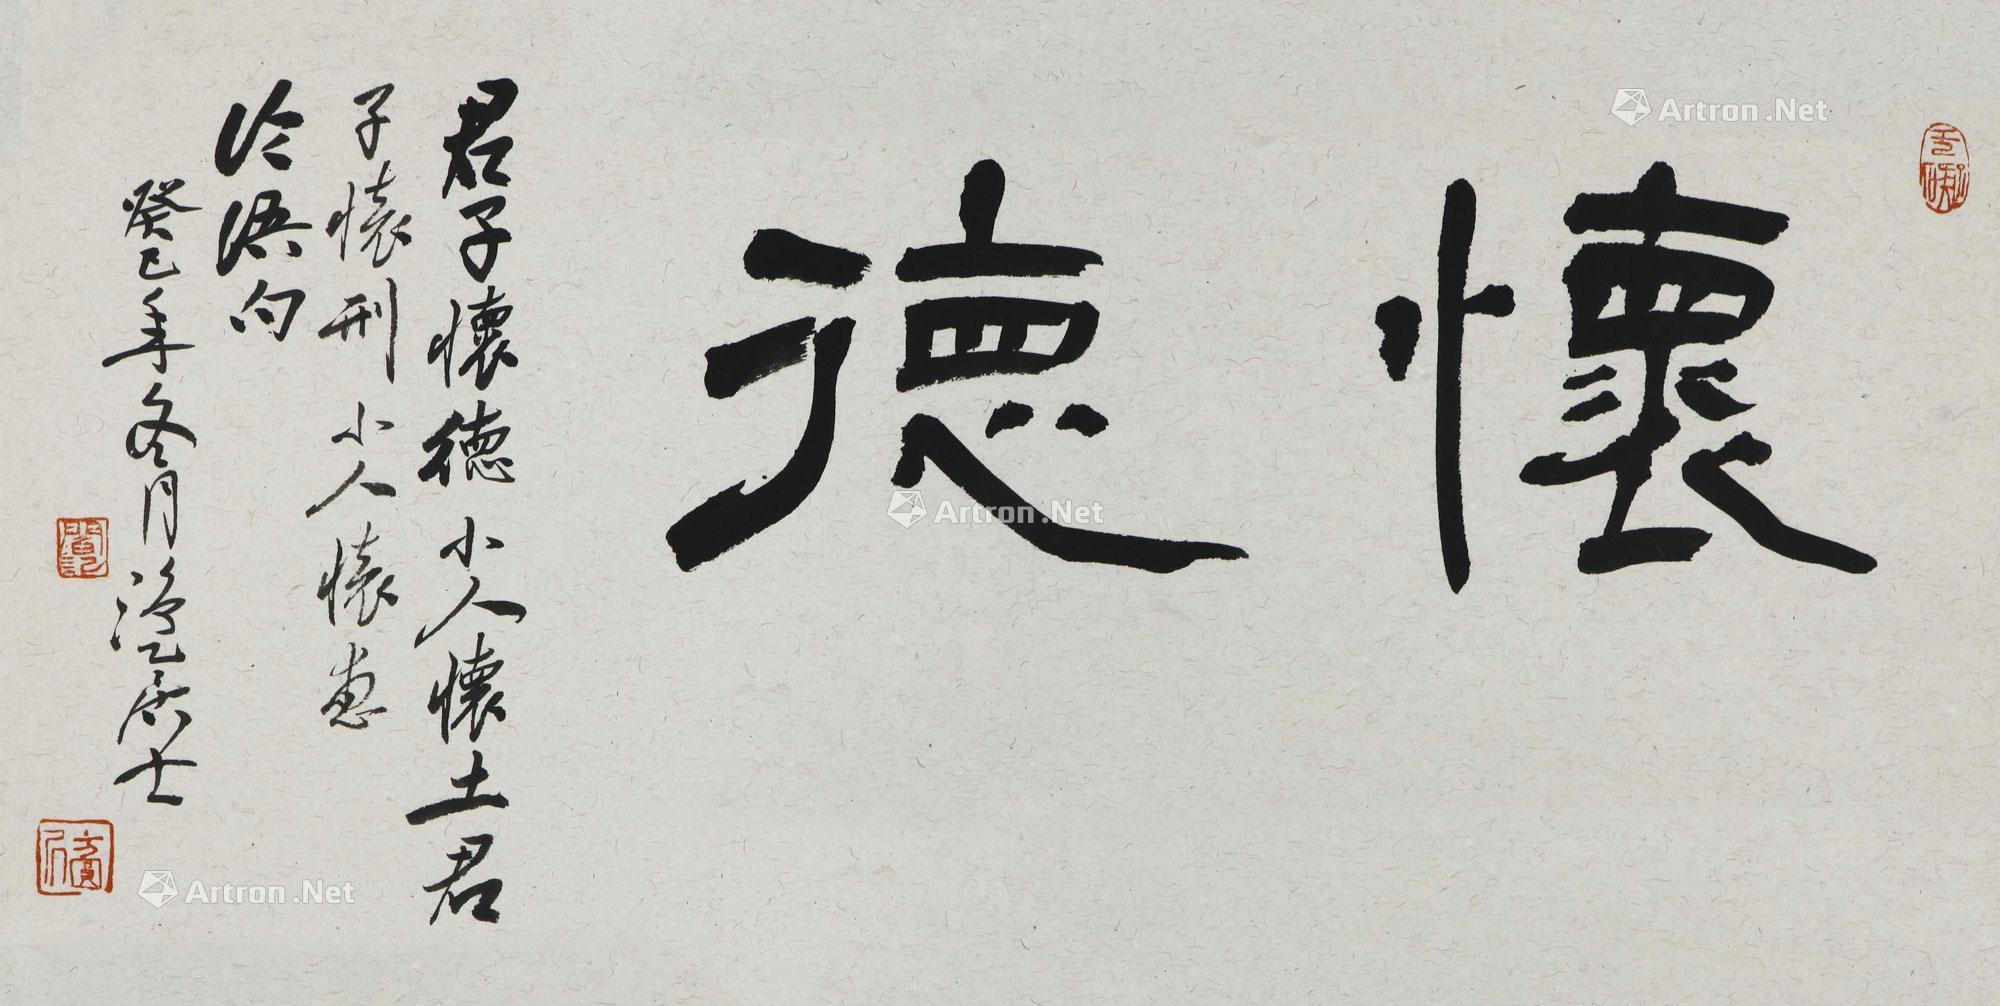 懷德
君子懷德小人懷土君
子懷刑小人懷惠
论语句
癸巳年冬月 居士
Artron.Net
Artron.Net
Artron.Net